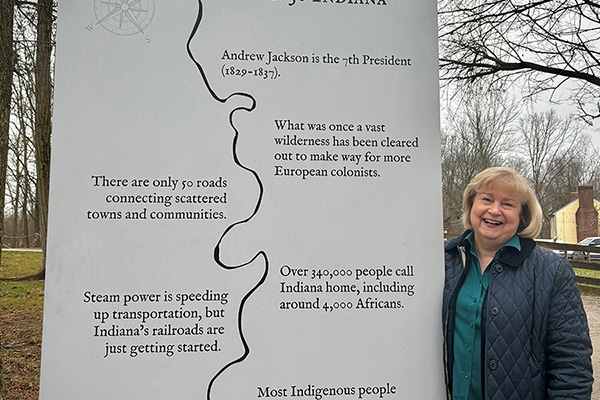 INDIANA
Andrew Jackson is the 7th President
(1829-1837).
What was once a vast
wilderness has been cleared
out to make way for more
European colonists.
There are only 50 roads
connecting scattered
towns and communities.
Over 340,000 people call
Indiana home, including
around 4,000 Africans.
Steam power is speeding
up transportation, but
Indiana's railroads are
just getting started.
Most Indigenous people